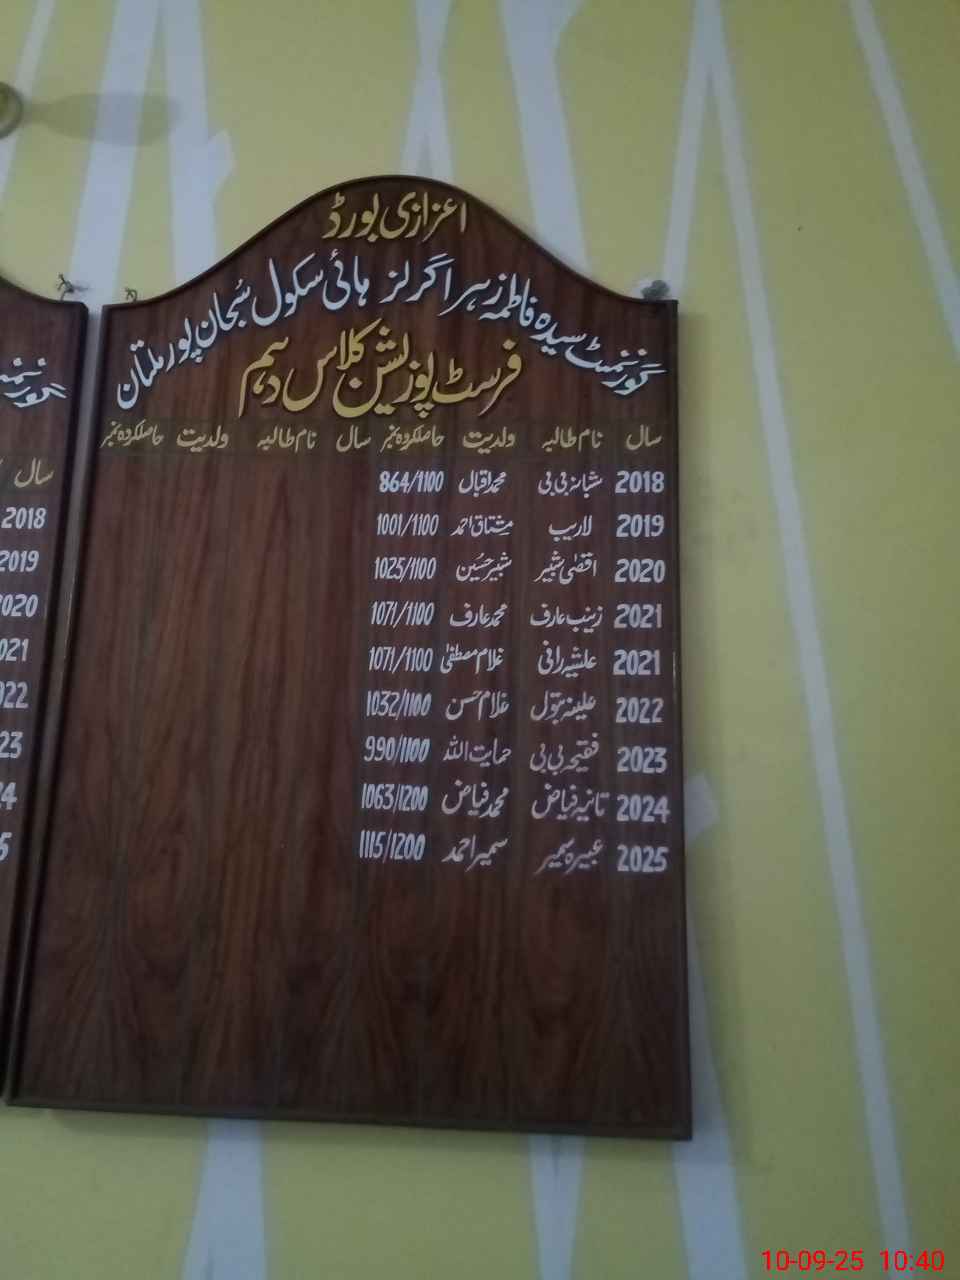 اعزازی بورڈ
گورنمنٹ سیدہ فاطمہ زہرا گرلز ہائی سکول سُبحان پور ملتان
فرسٹ پوزیشن کلاس دہم
سال نام طالبہ ولدیت حاصلکردہ نمبر سال نام طالبہ ولدیت حاصلکردہ نمبر
2018 شبانہ بی بی محمد اقبال 864/1100
2019 لاریب مشتاق احمد 1001/1100
2020 اقصٰی شبیر شبیر حسُین 1025/1100
2021 زینب عارف محمد عارف 1071/1100
2021 علشبہ رانی غلام مصطفیٰ 1071/1100
2022 علینہ بتول غلام حسن 1032/1100
2023 فقیحہ بی بی حمایت اللہ 990/1100
2024 تانیہ فیاض محمد فیاض 1063/1200
2025 عبیرہ سمیر سمیر احمد 1115/1200
سال
2018
2019
2020
10-09-25 10:40